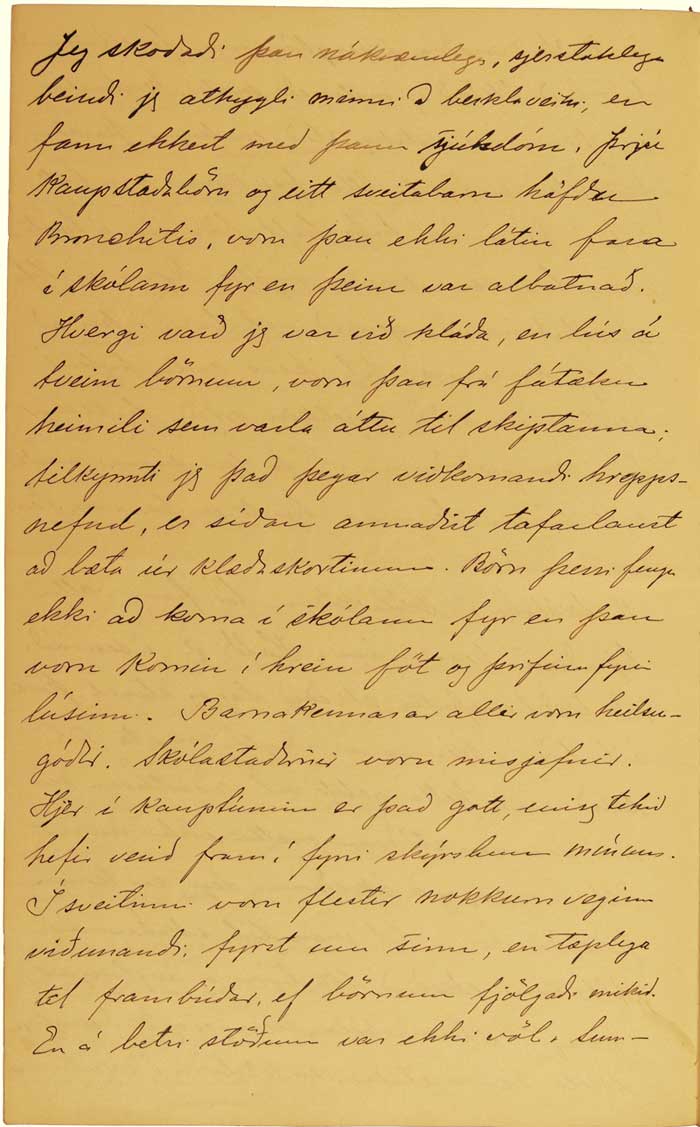 Jeg skoðaði þau nákvæmlega, sjerstaklega
beindi jeg athygli minni að berklaveiki, en
fann ekkert með þann sjúkdóm. Þrjú
Kaupstaðabörn og eitt sveitabarn höfðu
Bronchitis, voru þau ekki látin fara
í skólann fyr en þeim var albatnað.
Hvergi varð jeg var við kláða, en lús á
tveim börnum, voru þau frá fátæku
heimili sem varla áttu til skiptanna;
tilkynnti jeg það þegar viðkomandi hrepps-
nefnd, er síðan annaðist tafarlaust
að bæta úr klæðaskortinum. Börn þessi fengu
ekki að koma í skólann fyr en þau
voru komin í hrein föt og þrifin fyrir
lúsinni. Barnakennarar allir voru heilsu-
góðir. Skólastaðirnir voru misjafnir.
Hjer í kauptúninu er það gott, eins og tekið
hefir verið fram í fyrri skýrslum mínum.
Í sveitinni voru flestir nokkurn veginn
viðunandi, fyrst um sinn, en tæplega
til frambúðar, ef börnum fjölgaði mikið.
En á betri stöðum var ekki völ. Sum-